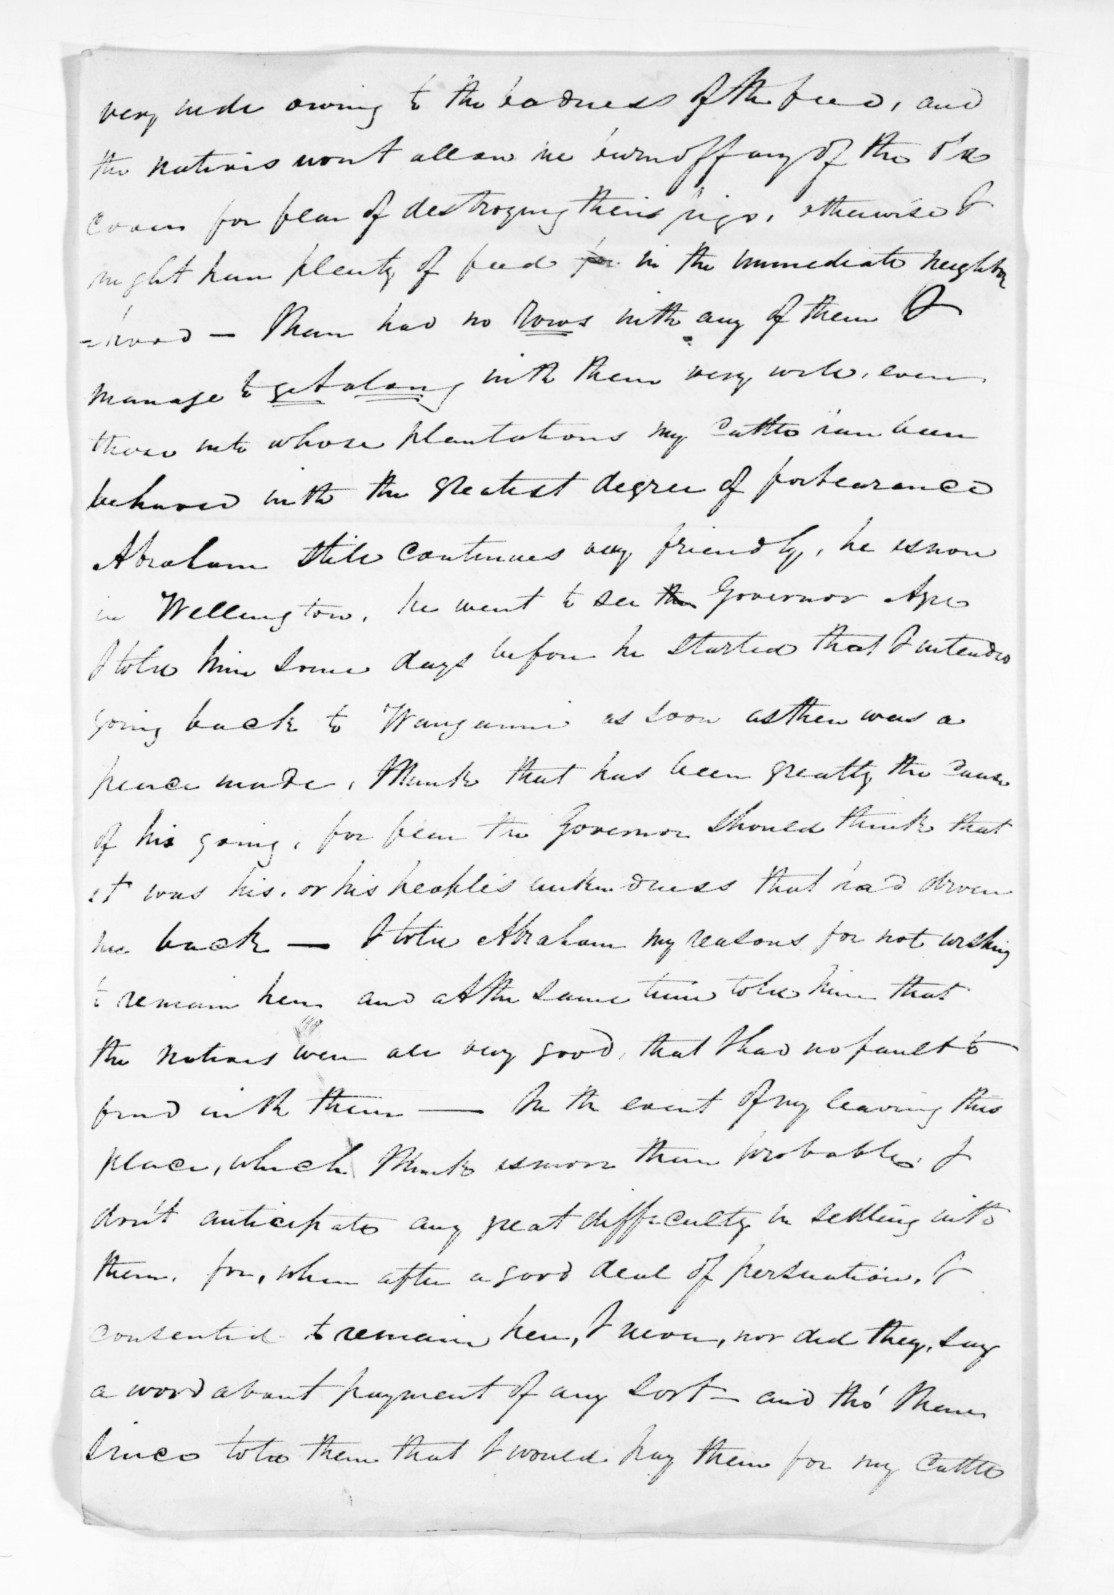 very wide owing to the badness of the feed, and
the natives wont allow me burn off any of the old
covers for fear of destroying their pigs, otherwise I
might have plenty of feed in the immediate neighbor
=hood — I have had no rows with any of them I
manage to get along with them very well, even
those into whose plantations my cattle have been
behaved with the greatest degree of forbearance
Abraham still continues very friendly, he is now
in Wellington, he went to see the Governor
I told him some days before he started that I intended
going back to Wanganui as soon as there was a
peace made, I think that has been greatly the cause
of his going, for fear the Governor should think that
it was his, or his people's unkindness that had driven
me back — I told Abraham my reasons for not wishing
to remain here and at the same time told him that
the natives were all very good, that I had no fault to
find with them — In the event of my leaving this
place, which I think is more than probable, I
don't anticipate any great difficulty in settling with
them, for, when after a good deal of persuation, I
consented to remain here, I never, nor did they, say
a word about payment of any sort — and tho' I have
since told them that I would pay them for my cattle